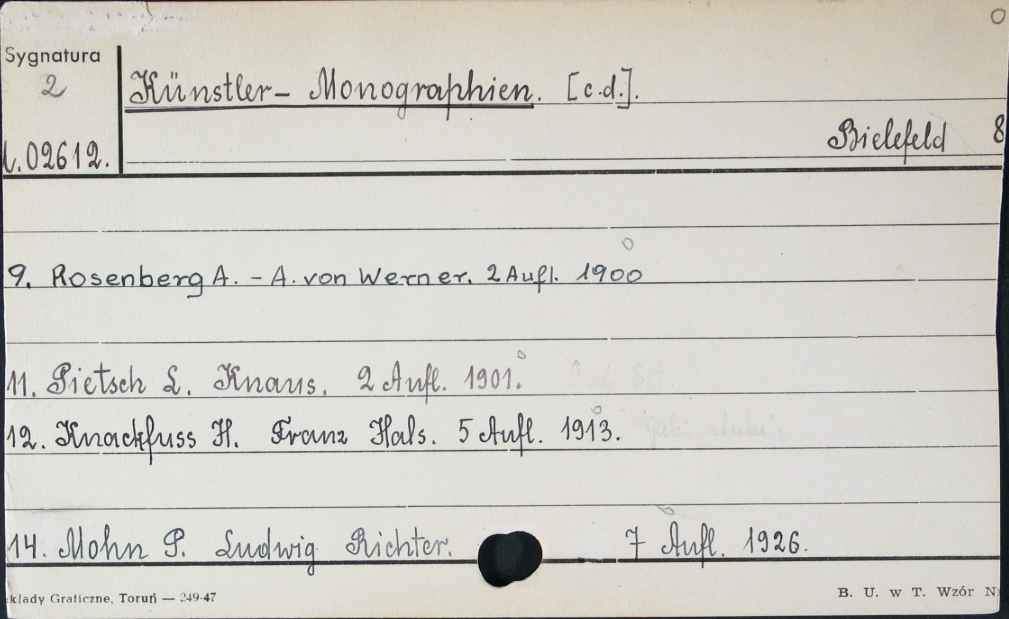 Sygnatura
2
02612.
Künstler- Monographien. [c.d.].
Bielefeld 8
9. Rosenberg A. - A. von Werner. 2 Aufl. 1900
11. Pietsch L. Knaus. 2 Aufl. 1901.
12. Knackfuss H. Franz Hals. 5 Aufl. 1913.
14. Mohn P. Ludwig Richter. 7 Aufl. 1926.
kłady Graficzne, Toruń — 249-47
B. U. w T. Wzór N